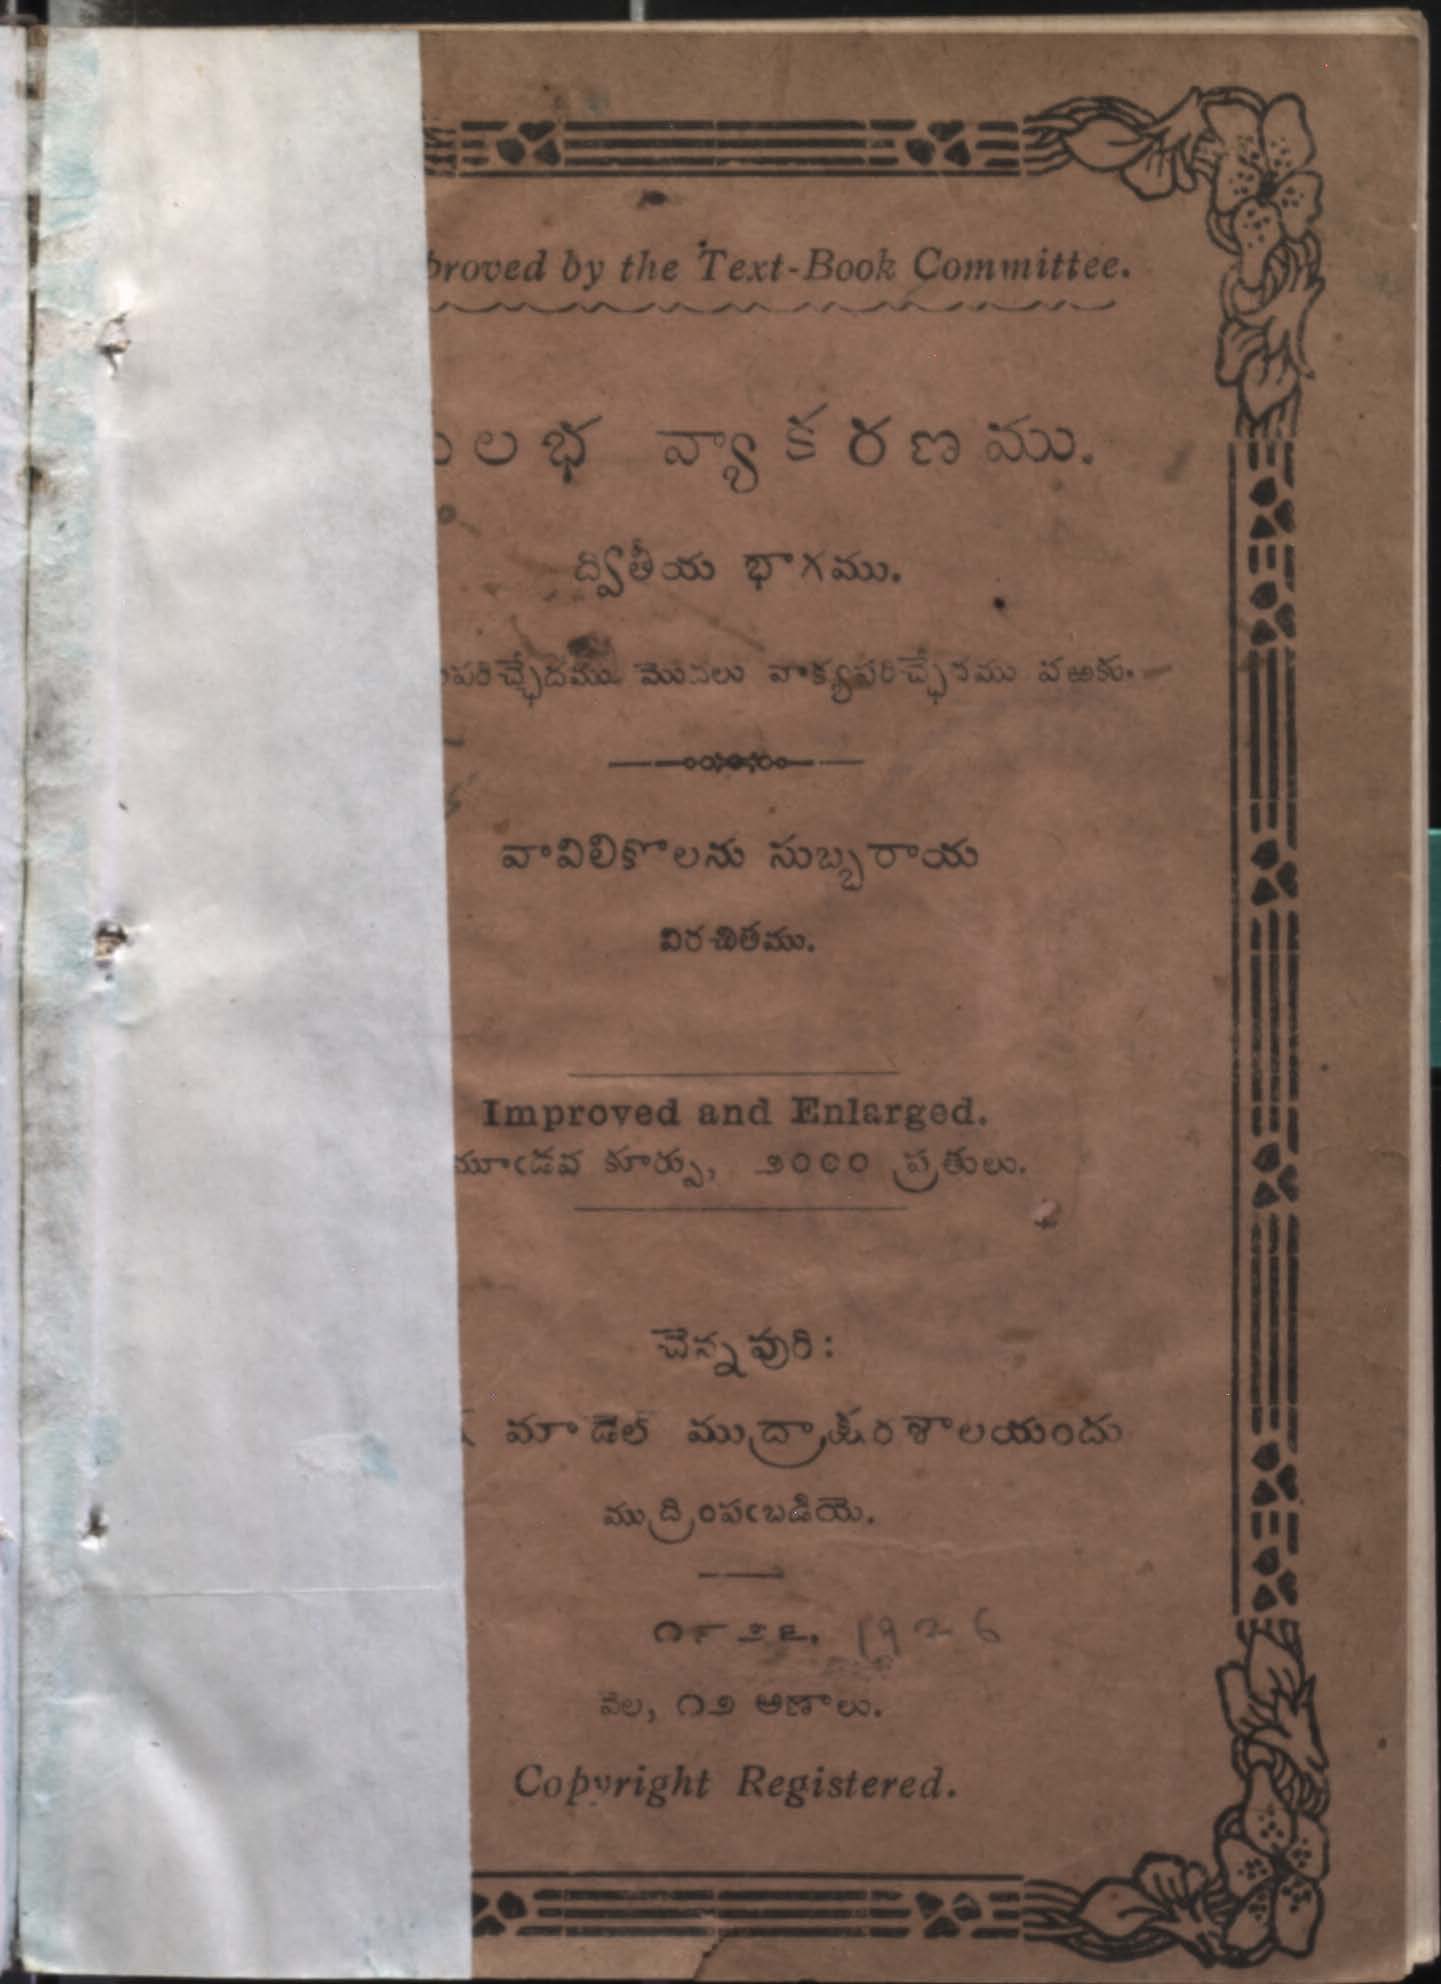 proved by the Text-Book Committee.
లభ వ్యాకరణము.
ద్వితీయ భాగము.
పరిచ్ఛేదము మొదలు వాక్యపరిచ్ఛేదము వఱకు.
వావిలికొలను సుబ్బరాయ
విరచితము.
Improved and Enlarged.
మూఁడవ కూర్పు, ౨౦౦౦ ప్రతులు.
చెన్నపురి:
మాడెల్ ముద్రాక్షరశాలయందు
ముద్రింపఁబడియె.
౧౯౨౬. 1926
వెల, ౧౨ అణాలు.
Copyright Registered.